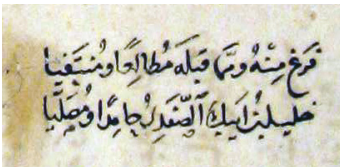 فرغ منه ومما قبله مطالعا ومنتقيا
خليل بن ايبك الصفدى حامدا ومصليا